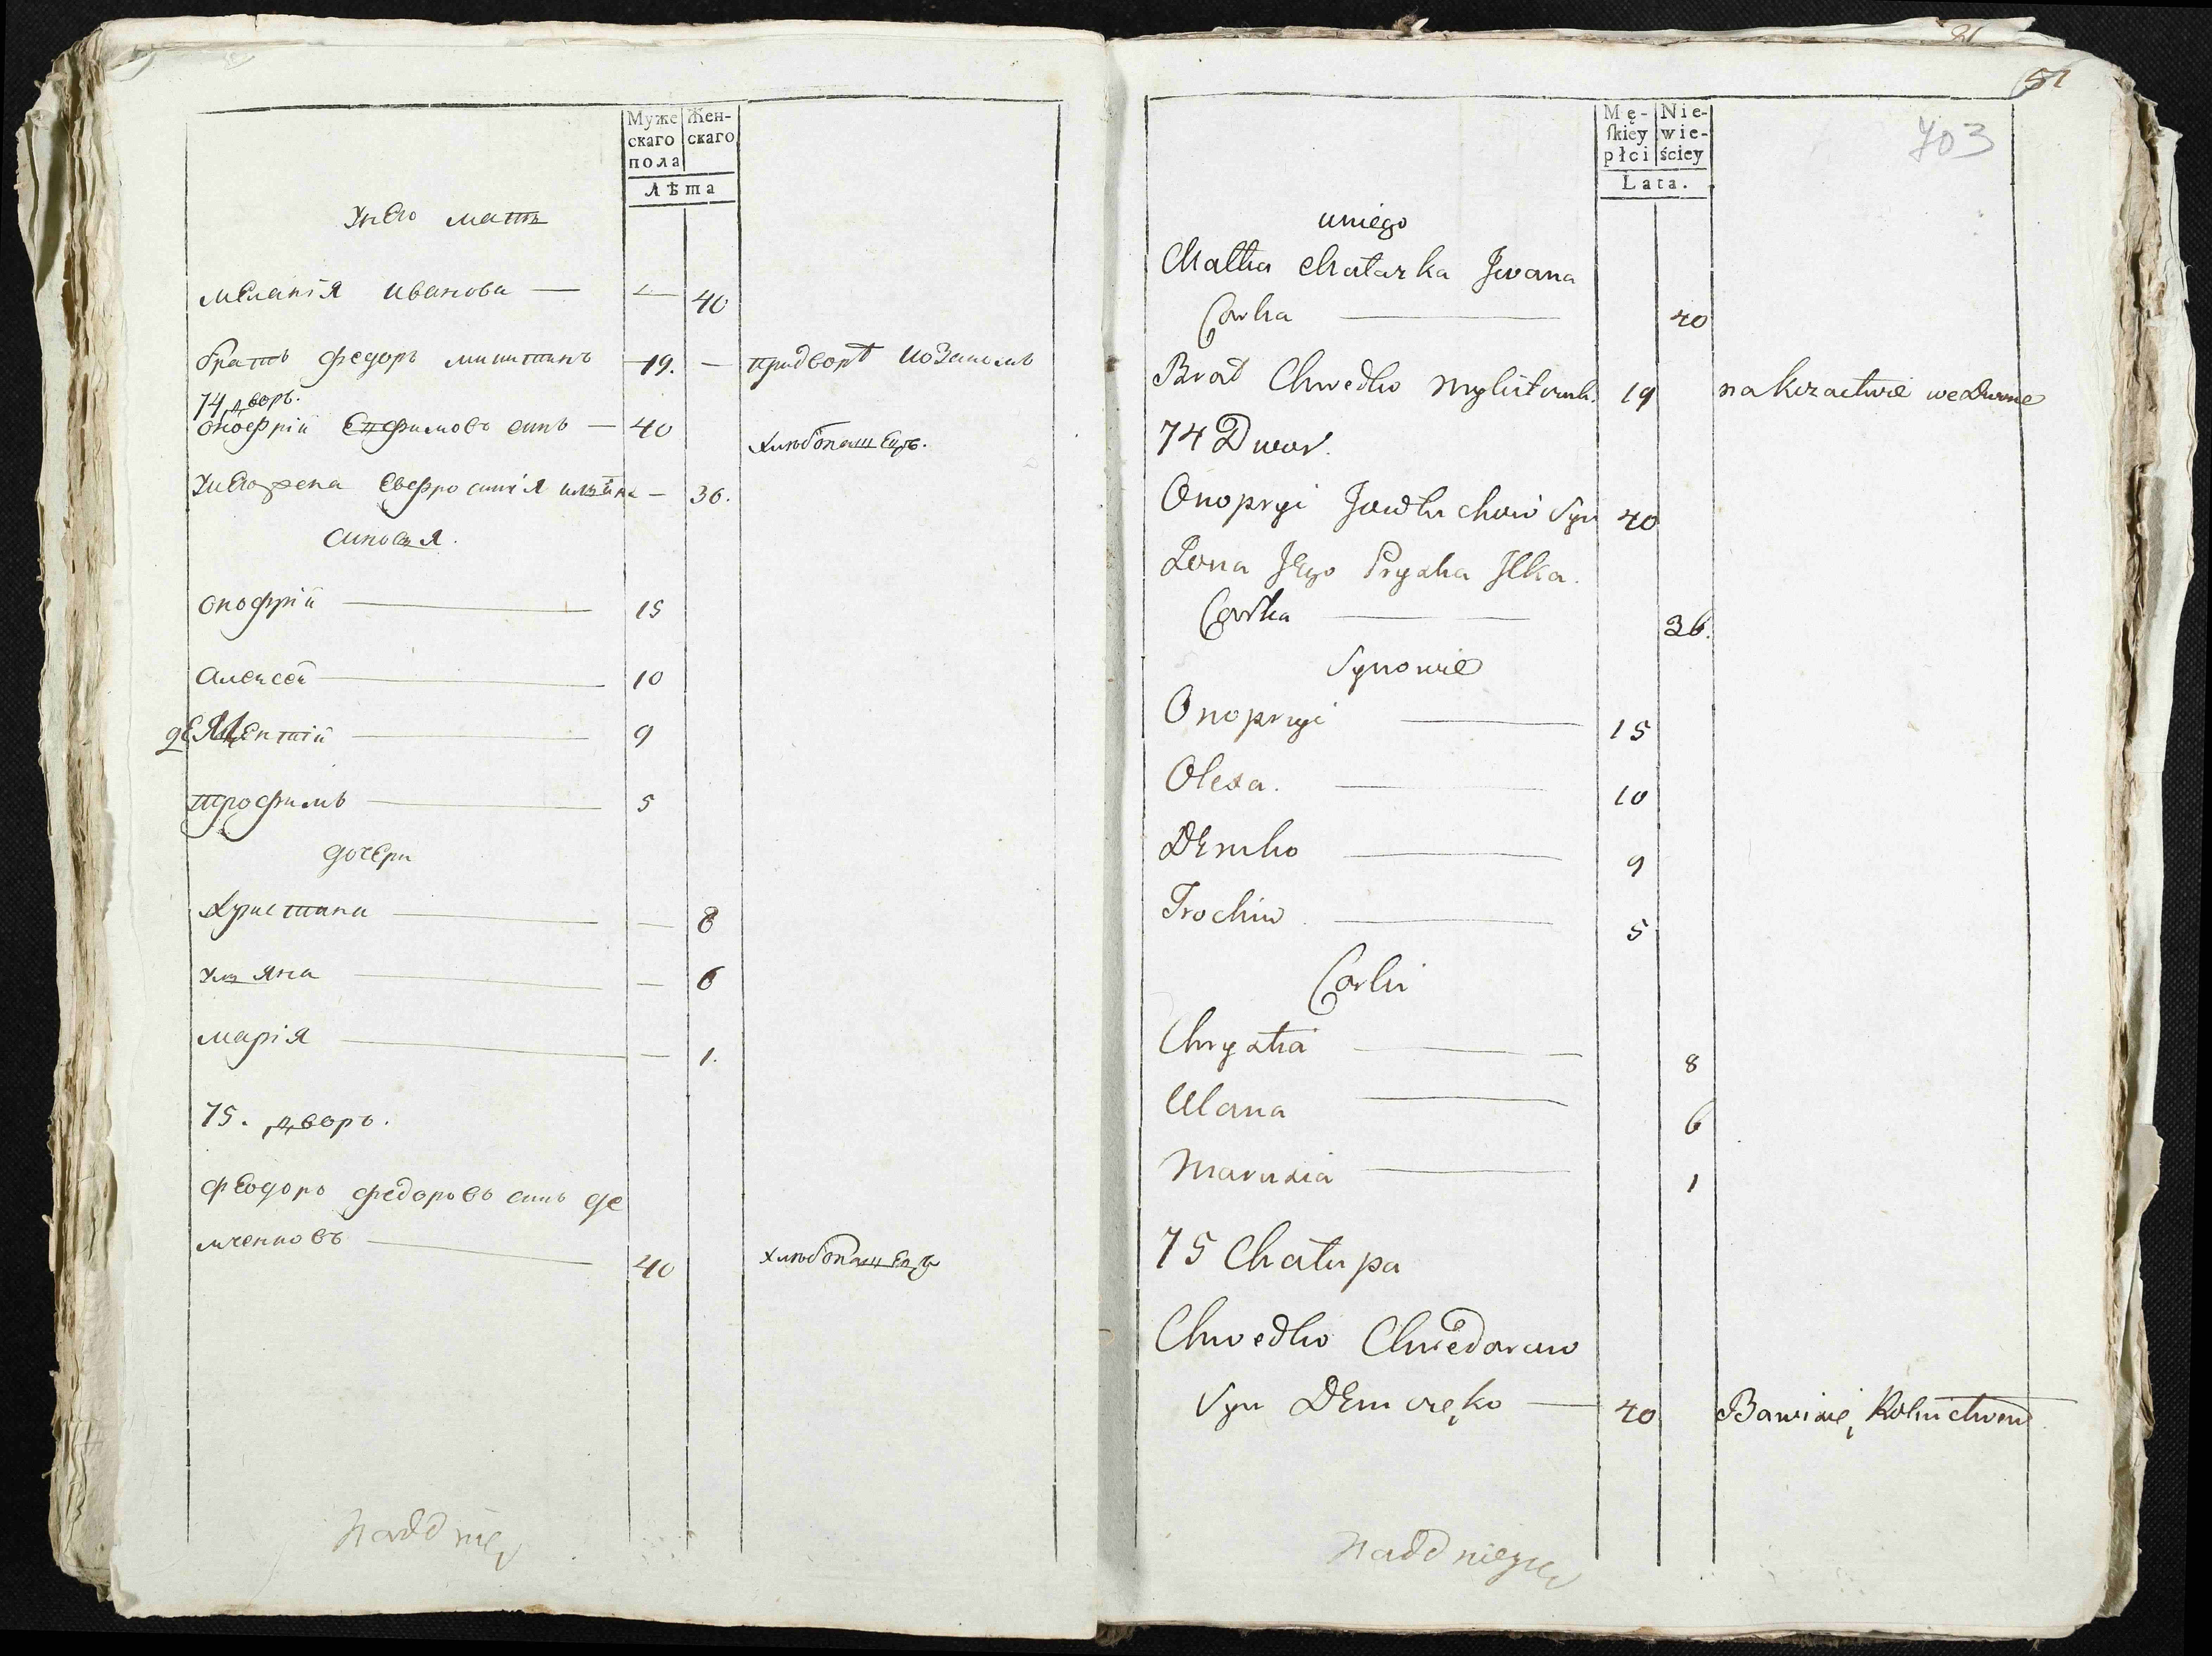 Муже
скаго
пола
Жен-
скаго
Лѣта
У него мать
мелания иванова — — 40
братъ федоръ микитинъ 19. — придворѣ козакомъ
74 дворъ.
оноефрій Евфимовъ синъ — 40 хлѣбопашецъ.
У него жена Евфросинія — 36.
синовья.
онофрій 15
алексей 10
деМентій 9
трофимъ 5
дочери
христина — 8
уляна — 6
марія — 1.
75. дворъ.
феодоръ федоровъ синъ де
мченковъ 40 хлѣбопашецъ
51
703
Mę-
skiey
płci
Nie-
wie-
ściey
Lata.
u niego
Matka Iwana
Corka 40
Brat Chwedko 19 na kozactwie we Dworze
74 Dwor.
Onopryi Jawtuchow Syn 40
Zona Jego Pryska Ilka.
Corka 36.
Synowie
Onopryi 15
Olexa. 10
Demko 9
Trochim 5
Corki
Chrystia 8
Ulana 6
Marusia 1
75 Chałupa
Chwedko Chwedorow
Syn Demczęko — 40 Bawi się Rolnictwem